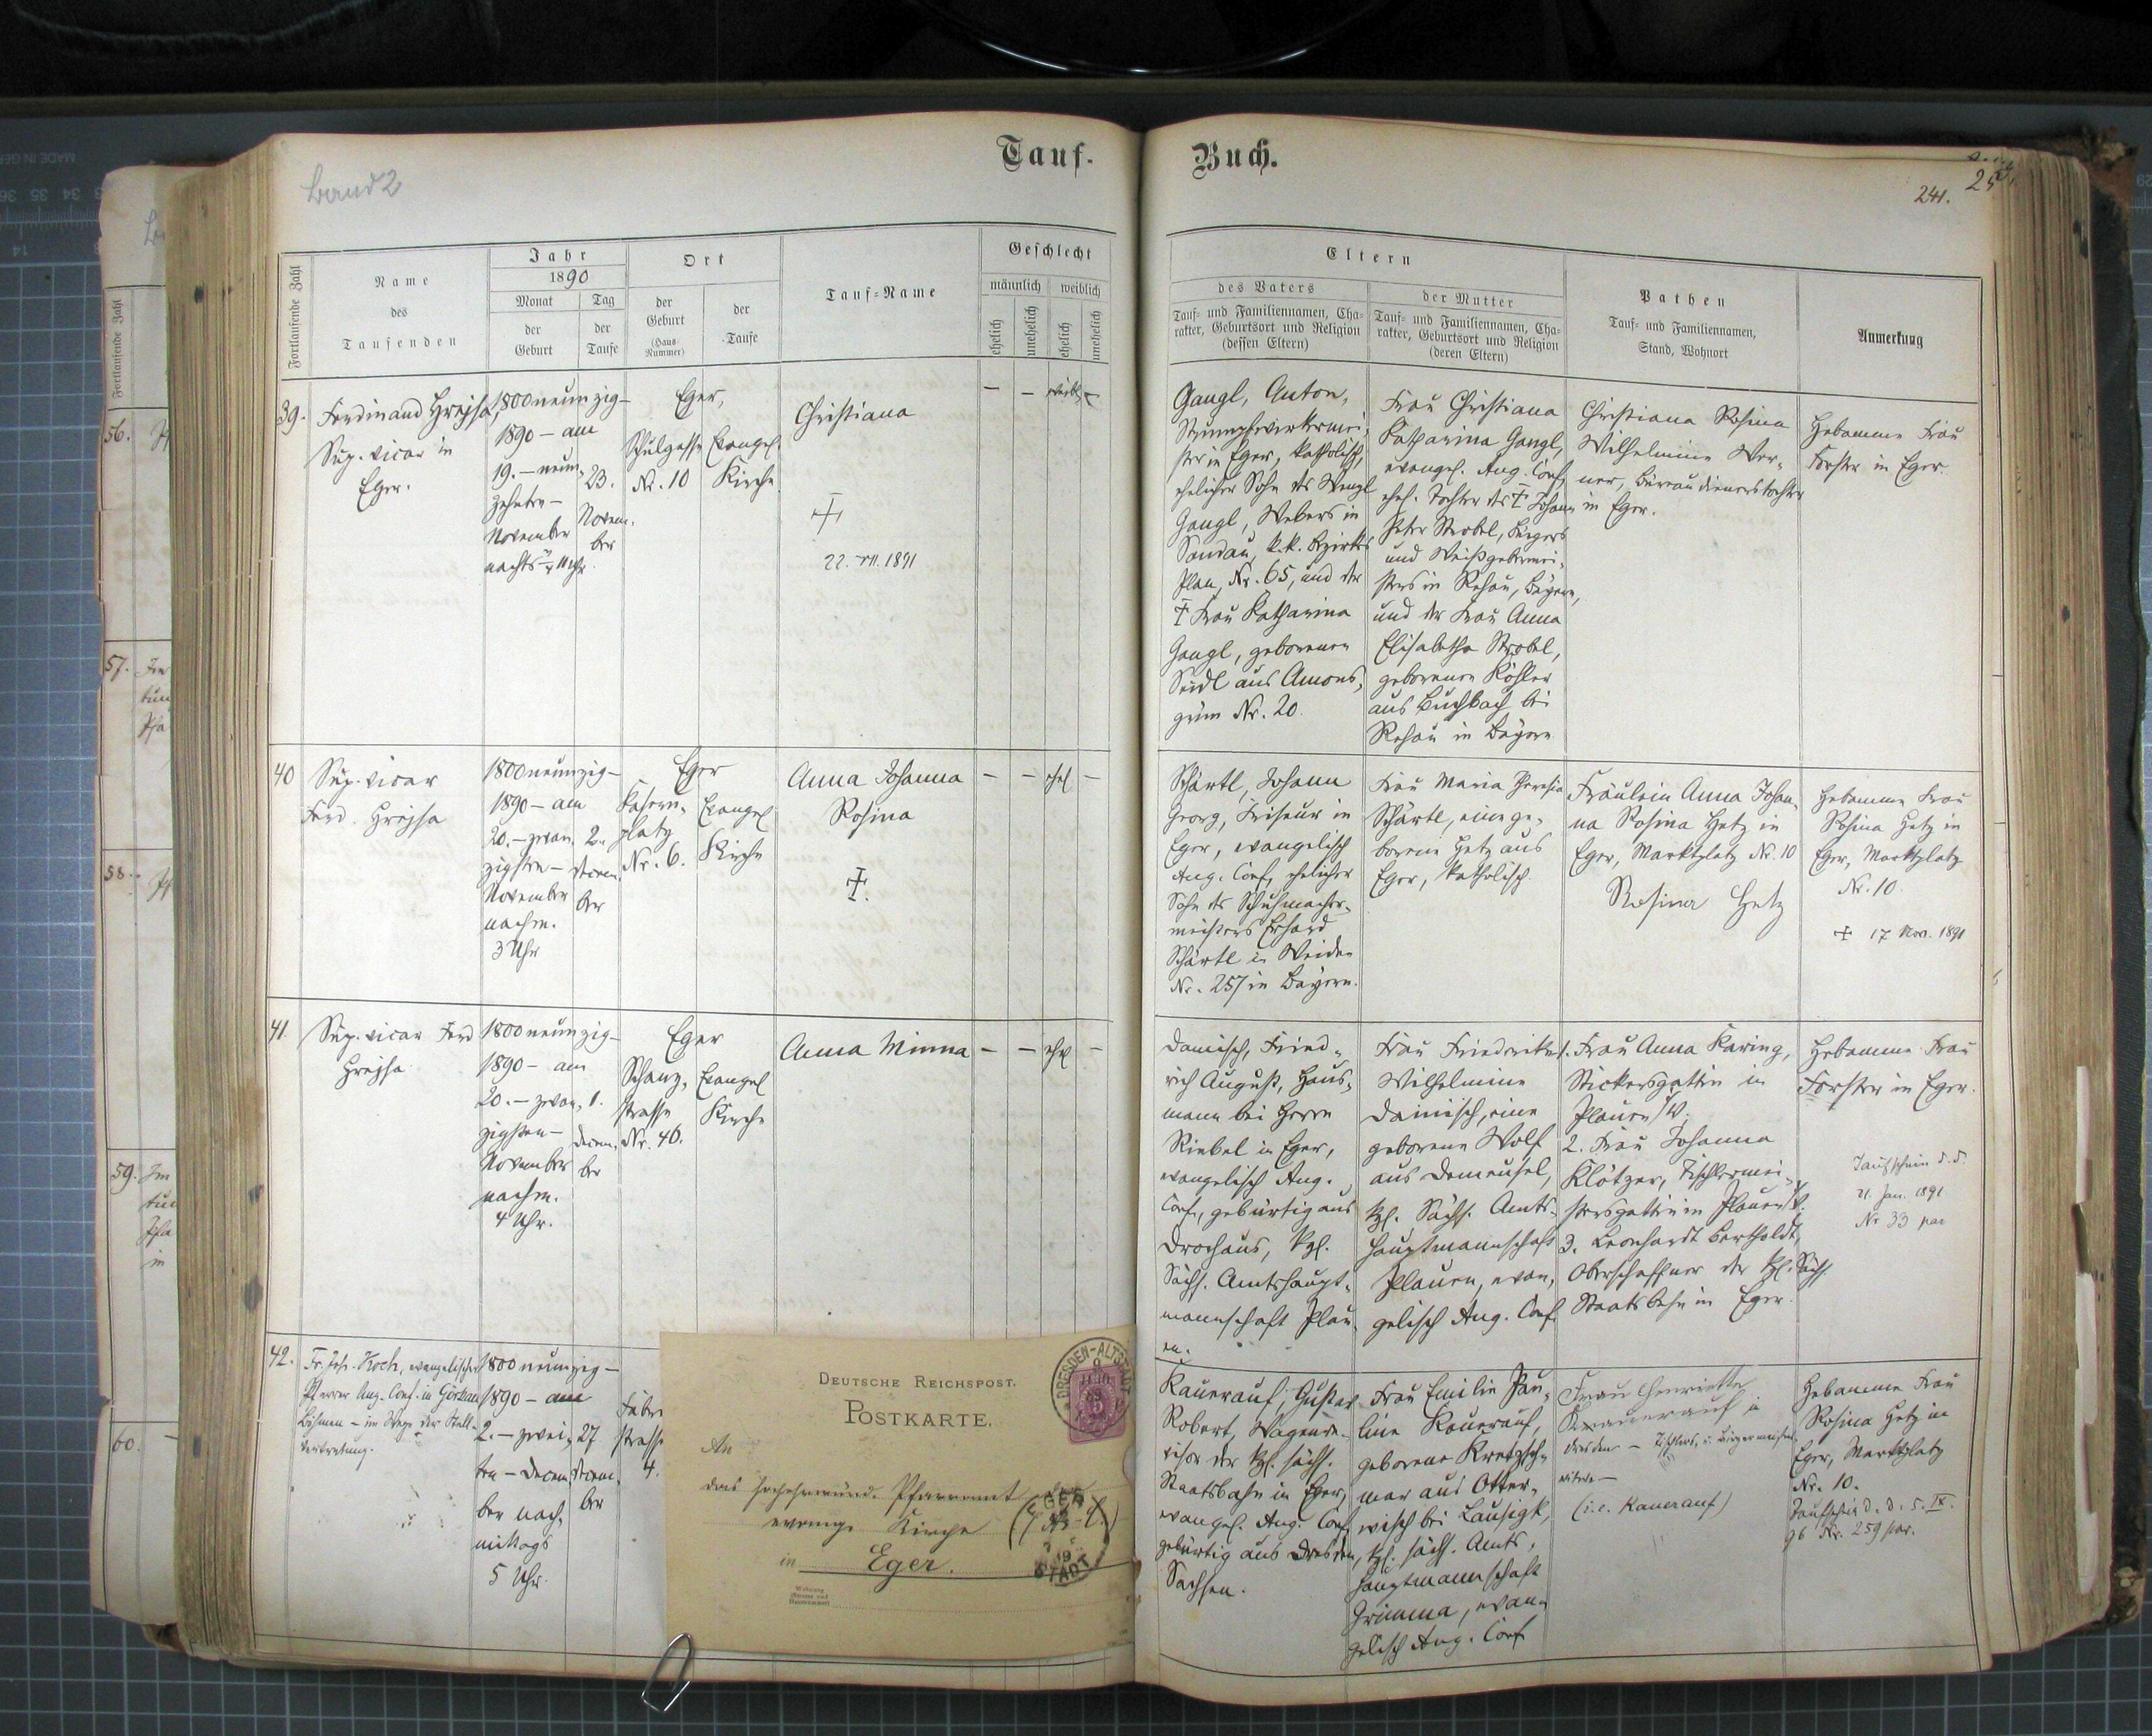 Tauf-
Buch.
Band 2
241.
Fortlaufende Zahl
Name
des
Taufenden
Jahr
1890
Monat
der
Geburt
Tag
der
Taufe
Ort
der
Geburt
(Haus-
Nummer)
der
Taufe
Tauf-Name
Geschlecht
männlich
weiblich
ehelich
unehelich
ehelich
unehelich
Eltern
des Vaters
Tauf- und Familiennamen, Cha-
rakter, Geburtsort und Religion
(dessen Eltern)
der Mutter
Tauf- und Familiennamen, Cha-
rakter, Geburtsort und Religion
(deren Eltern)
Pathen
Tauf- und Familiennamen,
Stand, Wohnort
Anmerkung
39.
Ferdinand Hrejsa,
Sup. vicar in
Eger.
1800 neunzig-
1890 - am
19. - neun-
zehnten -
November
nachts 11 Uhr
23.
Novem-
ber
Eger,
Schulgasse
Nr. 10
Evangel.
Kirche
Christiana
22. VII. 1891
- - -
Gangl, Anton,
Strumpfwirkermei-
ster in Eger, katholisch,
ehelicher Sohn des Wenzl
Gangl, Webers in
Sandau, k.k. Bezirks
Plan, Nr. 65, und der
† Frau Katharina
Gangl, geborenen
Seidl aus Amons-
grün Nr. 20.
Frau Christiana
Katharina Gangl,
evangel. Aug. Conf,
ehel. Tochter des † Johann
Peter Strobel, Bürgers
und Weißgerbermei-
sters in Rehau, Bayern,
und der Frau Anna
Elisabetha Strobel,
geborenen Köhler
aus Buchbach bei
Rehau in Bayern
Christiana Rosina
Wilhelmine Wer-
ner, Bureaudienerstochter
in Eger.
Hebamme Frau
Forster in Eger.
40
Sup. vicar
Ferd. Hrejsa
1800 neunzig-
1890 - am
20. - zwan-
zigsten -
November
nachm.
3 Uhr
2.
Decem-
ber
Eger
Kasern-
platz
Nr. 6.
Evangel
Kirche
Anna Johanna
Rosina
†.
- - ehel -
Schärtl, Johann
Georg, Friseur in
Eger, evangelisch
Aug. Conf, ehelicher
Sohn des Schuhmacher-
meisters Erhard
Schärtl in Weiden
Nr. 257 in Bayern.
Frau Maria Theresia
Schärtl, eine ge-
borene Hetz aus
Eger, katholisch.
Fräulein Anna Johan-
na Rosina Hetz in
Eger, Marktplatz Nr. 10
Rosina Hetz
Hebamme Frau
Rosina Hetz in
Eger, Marktplatz
Nr. 10.
† 17 Nov. 1891
41
Sup. vicar Ferd
Hrejsa
1800 neunzig-
1890 - am
20. - zwan-
zigsten -
November
nachm.
4 Uhr.
1.
Decem-
ber
Eger
Schanz-
strasse
Nr. 46.
Evangel
Kirche
Anna Minna
- - ehel -
Damisch, Fried-
rich August, Haus-
mann bei Herrn
Riebel in Eger,
evangelisch Aug.
Conf, gebürtig aus
Drochaus, kgl.
Sächs. Amtshaupt-
mannschaft Plau-
en.
Frau Friederike
Wilhelmine
Damisch, eine
geborene Wolf
aus Demeusel,
kgl. Sächs. Amts-
hauptmannschaft
Plauen, evan-
gelisch Aug. Conf.
1. Frau Anna Karing,
Stickersgattin in
Plauen i/V.
2. Frau Johanna
Klötzer, Tischlermei-
stersgattin in Plauen i/V.
3. Leonhardt Bertholdt,
Oberschaffner der kgl. Sächs
Staatsbahn in Eger.
Hebamme Frau
Forster in Eger.
Taufschein d.d.
21. Jan. 1891
Nr 33 par
42.
Fr. Joh. Koch, evangelischer
Pfarrer Aug. Conf. in Görkau
Böhmen - im Wege der Stell-
vertretung.
1800 neunzig -
1890 - am
2. - zwei-
ten - Decem-
ber nach-
mittags
5 Uhr.
27
Decem-
ber
strasse
4.
Kauerauf, Gustav
Robert, Wagenre-
visor der kgl. sächs.
Staatsbahn in Eger,
evangel. Aug. Conf,
gebürtig aus Dresden,
Sachsen.
Frau Emilie Pau-
line Kauerauf,
geborene Kretzsch-
mar aus Otter-
wisch bei Lausigk,
kgl. sächs. Amts-
hauptmannschaft
Grimma, evan-
gelisch Aug. Conf
Frau Henriette
Kauerauf in
Dresden -
witwe -
(i.e. Kauerauf)
Hebamme Frau
Rosina Hetz in
Eger, Marktplatz
Nr. 10.
Taufschein d. d. 5. IX.
96 Nr. 259 par.
DEUTSCHE REICHSPOST.
POSTKARTE.
DRESDEN-ALTSTADT
An
das hochehrwürd. Pfarramt der
evang. Kirche
in Eger.
EGER
STADT
Fortlaufende Zahl
56.
57.
58.
59.
60.